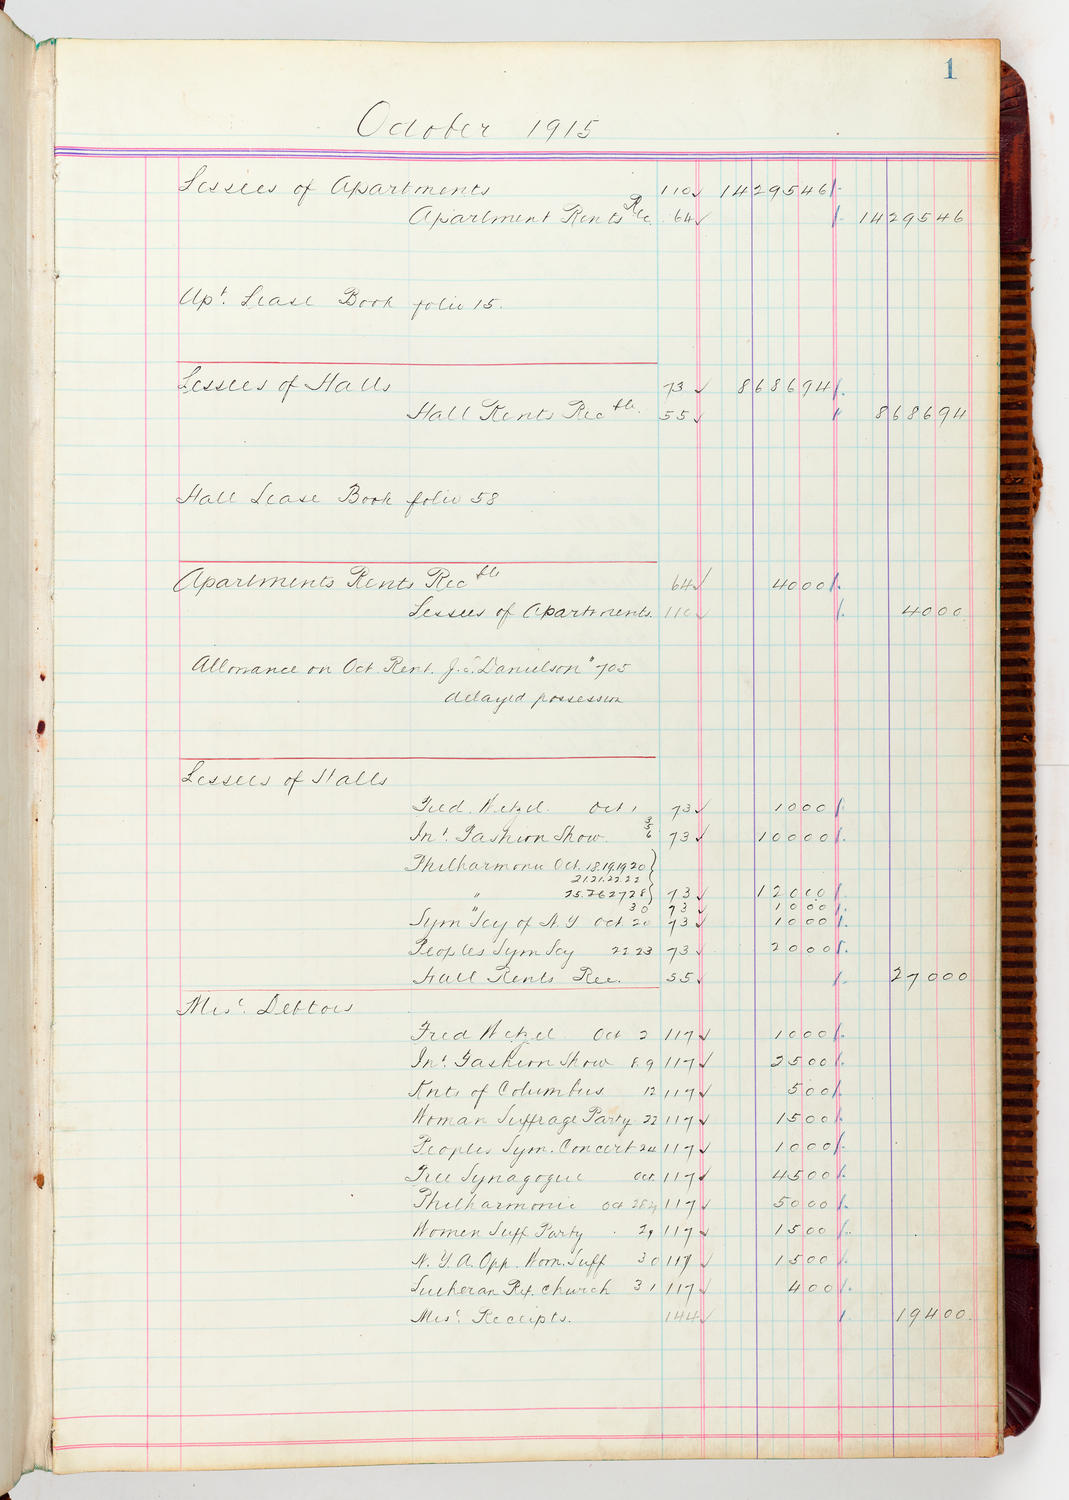 1
October 1915
Lessees of Apartments 110 ✓ 1429546
Apartment Rents Rec. 64 ✓ 1429546
Apt. Lease Book folio 15.
Lessees of Halls 73 ✓ 868694
Hall Rents Recble. 55 ✓ 868694
Hall Lease Book folio 58
Apartments Rents Recble 64 ✓ 4000
Lessees of Apartments. 110 4000
Allowance on Oct. Rent. Danielson 705
delayed possession
Lessees of Halls
Fred. Wetzel. Oct 1 73 ✓ 1000
Int. Fashion Show. 3 5 6 73 ✓ 10000
Philharmonic Oct. 18.19.19.20
21.21.22.22
" 25.26 27 28 73 ✓ 12000
" 30 73 ✓ 1000
Sym Scy of N.Y Oct 20 73 ✓ 1000
Peoples Sym Scy 22 23 73 ✓ 2000
Hall Rents Rec. 55 ✓ 27000
Mis. Debtors
Fred Wetzel Oct 2 117 ✓ 1000
Int. Fashion Show 8.9 117 ✓ 2500
Knts of Columbus 12 117 ✓ 500
Woman Suffrage Party 22 117 ✓ 1500
Peoples Sym. Concert 24 117 ✓ 1000
Free Synagogue Oct. 117 ✓ 4500
Philharmonic Oct 117 ✓ 5000
Women Suff Party 29 117 ✓ 1500
N.Y.A. Opp. Wom. Suff 30 117 ✓ 1500
Lutheran Ref. Church 31 117 ✓ 400
Mis. Receipts. 144 ✓ 19400